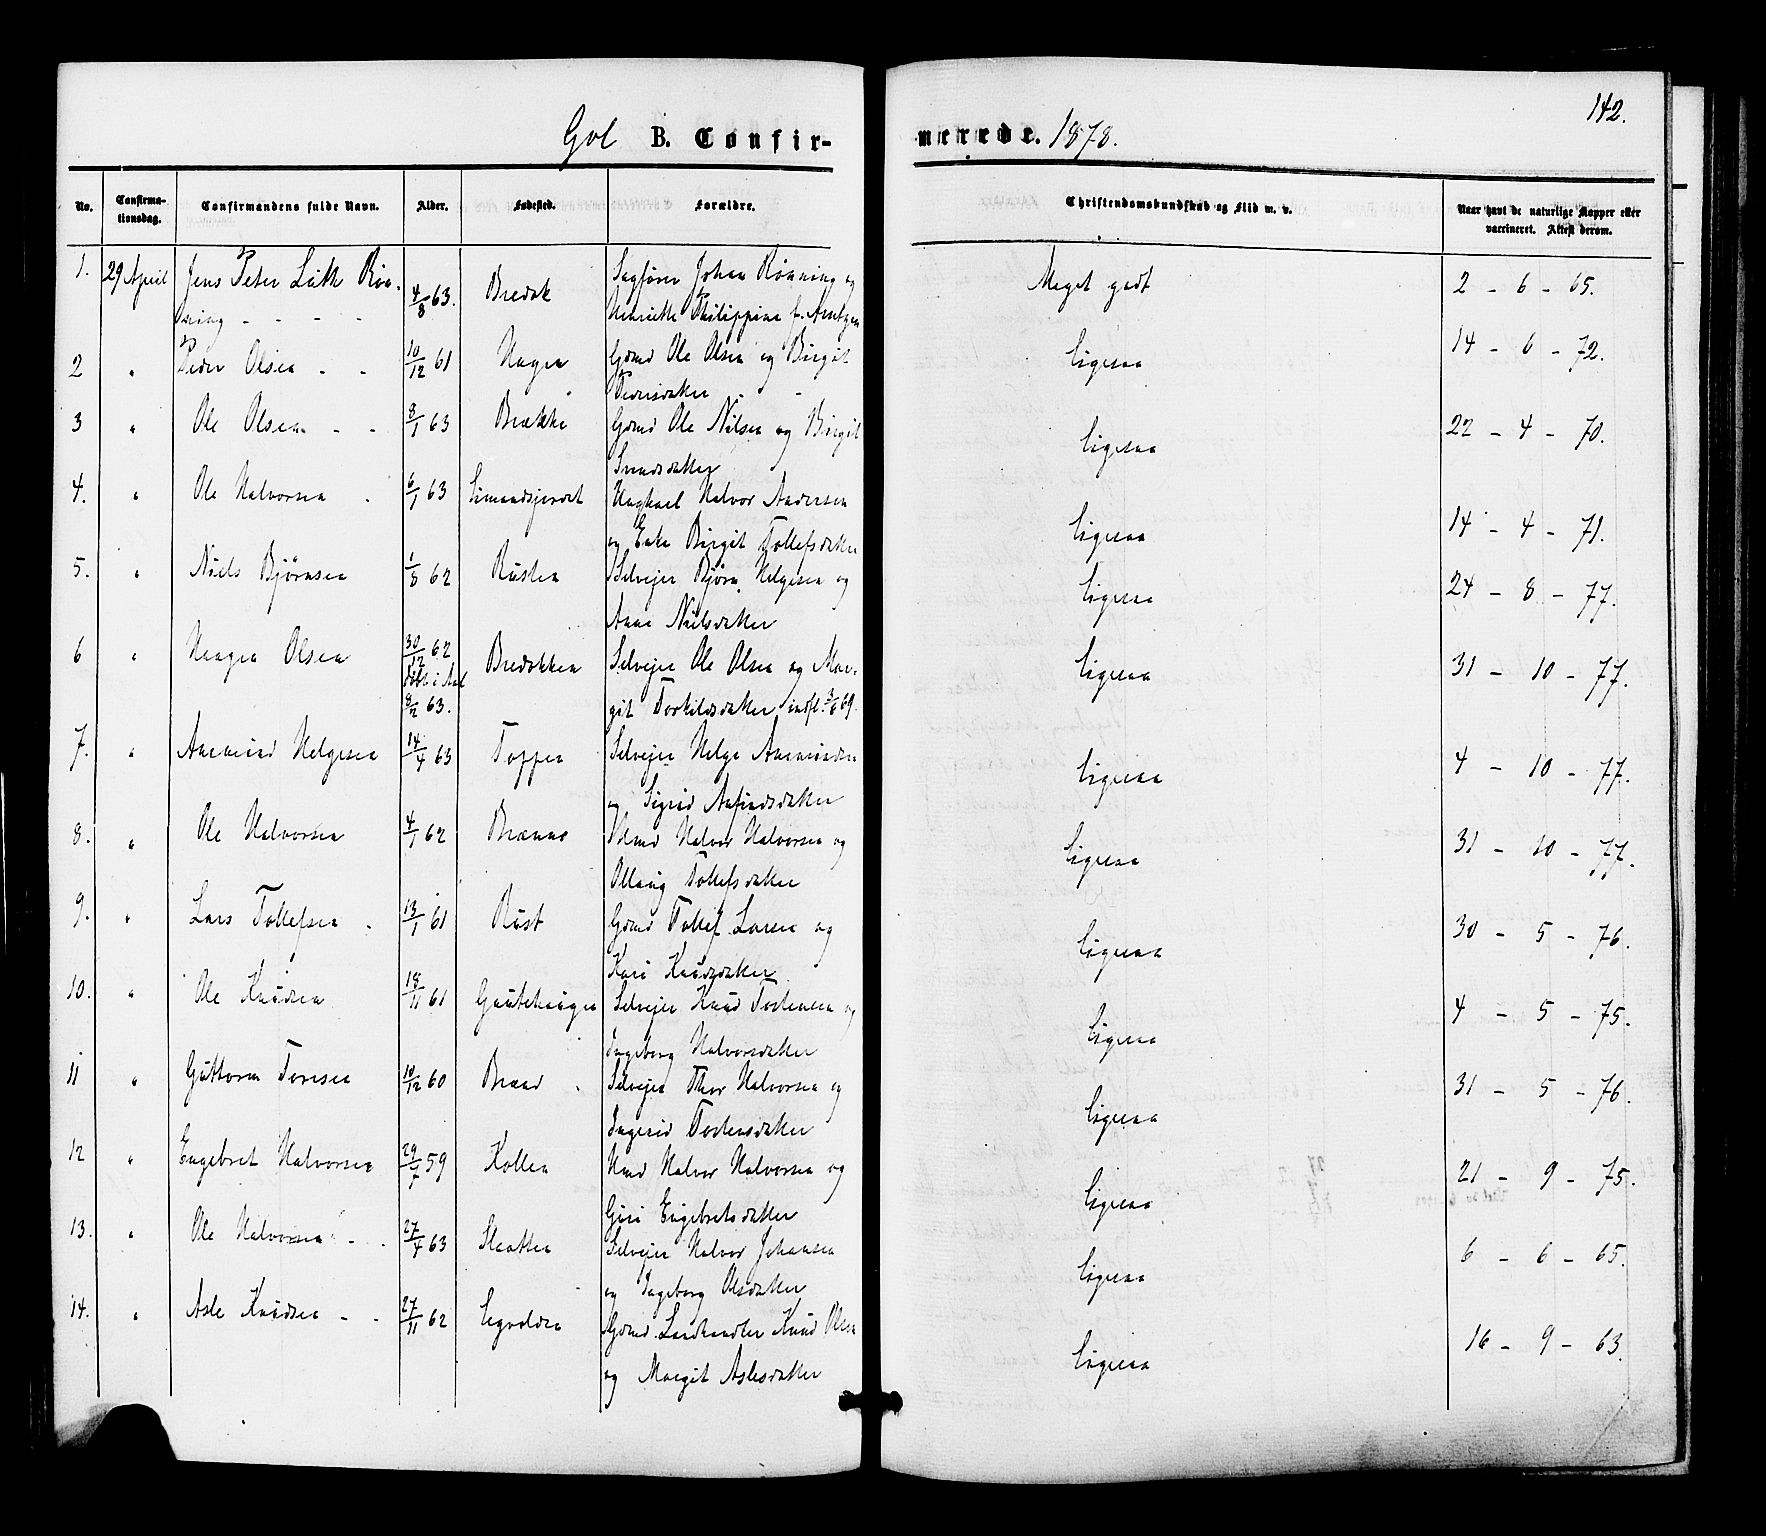 142.
Gol B. Confirmerede. 1878.
No. Confirmationsdag. Confirmandens fulde Navn. Alder. Fødested. Forældre. Christendomskundskab og Flid m. v. Naar havt de naturlige Kopper eller vaccineret. Attest derom.
1. 29 April Jens Peter Røn- 4/8 63. Sagfører Johan Rønning og Meget godt 2 - 6 - 65.
ning - - - Henriette Philippine f.
2 " Peder Olsen - - 10/12 61 Hagen Gdmd Ole Olsen og Birgit Ligesaa 14 - 6 - 72.
Pedersdatter - -
3 " Ole Olsen - - 8/1 63 Brække Gdmd Ole Nilsen og Birgit Ligesaa 22 - 4 - 70.
Svendsdatter
4. " Ole Halvorsen . 6/1 63 Ungkarl Halvor Andersen Ligesaa 14 - 4 - 71.
og Enke Birgit Tollefsdatter
5. " Niels Bjørnsen 1/8 62 Rusten Selvejer Bjørn Helgesen og Ligesaa 24 - 8 - 77.
Anne Nielsdatter
6 " Haagen Olsen 30/12 62 Bredokken Selvejer Ole Olsen og Mar- Ligesaa 31 - 10 - 77.
døbt i Aal
8/2 63. git Torkildsdatter indfl. 3/6 69.
7. " Amund Helgesen 14/4 63 Toppen Selvejer Helge Amundsen Ligesaa 4 - 10 - 77.
og Sigrid Anfindsdatter
8. " Ole Halvorsen 4/1 62 Brenno Halvor Halvorsen og Ligesaa 31 - 10 - 77.
Ollaug Tollefsdatter
9. " Lars Tollefsen . 13/1 61 Rust Gdmd Tollef Larsen og Ligesaa 30 - 5 - 76.
Kari Knudsdatter
10. " Ole Knudsen 18/11 61 Gautehaugen Selvejer Knud Tostensen og Ligesaa 4 - 5 - 75.
Ingeborg Halvorsdatter
11 " Guttorm Toresen 10/12 60 Selvejer Thor Halvorsen og Ligesaa 31 - 5 - 76.
Ingerid Tostensdatter
12 " Engebret Halvorsen 29/7 59 Kollen Hmd Halvor Halvorsen og Ligesaa 21 - 9 - 75.
Guri Engebretsdatter
13. " Ole Halvorsen - - 27/4 63 Slaatten Selvejer Halvor Johansen Ligesaa 6 - 6 - 65.
og Ingeborg Olsdatter
14. " Asle Knudsen - - 27/11 62 Gdmd. Landhandler Knud Olsen Ligesaa 16 - 9 - 63.
og Margit Aslesdatter